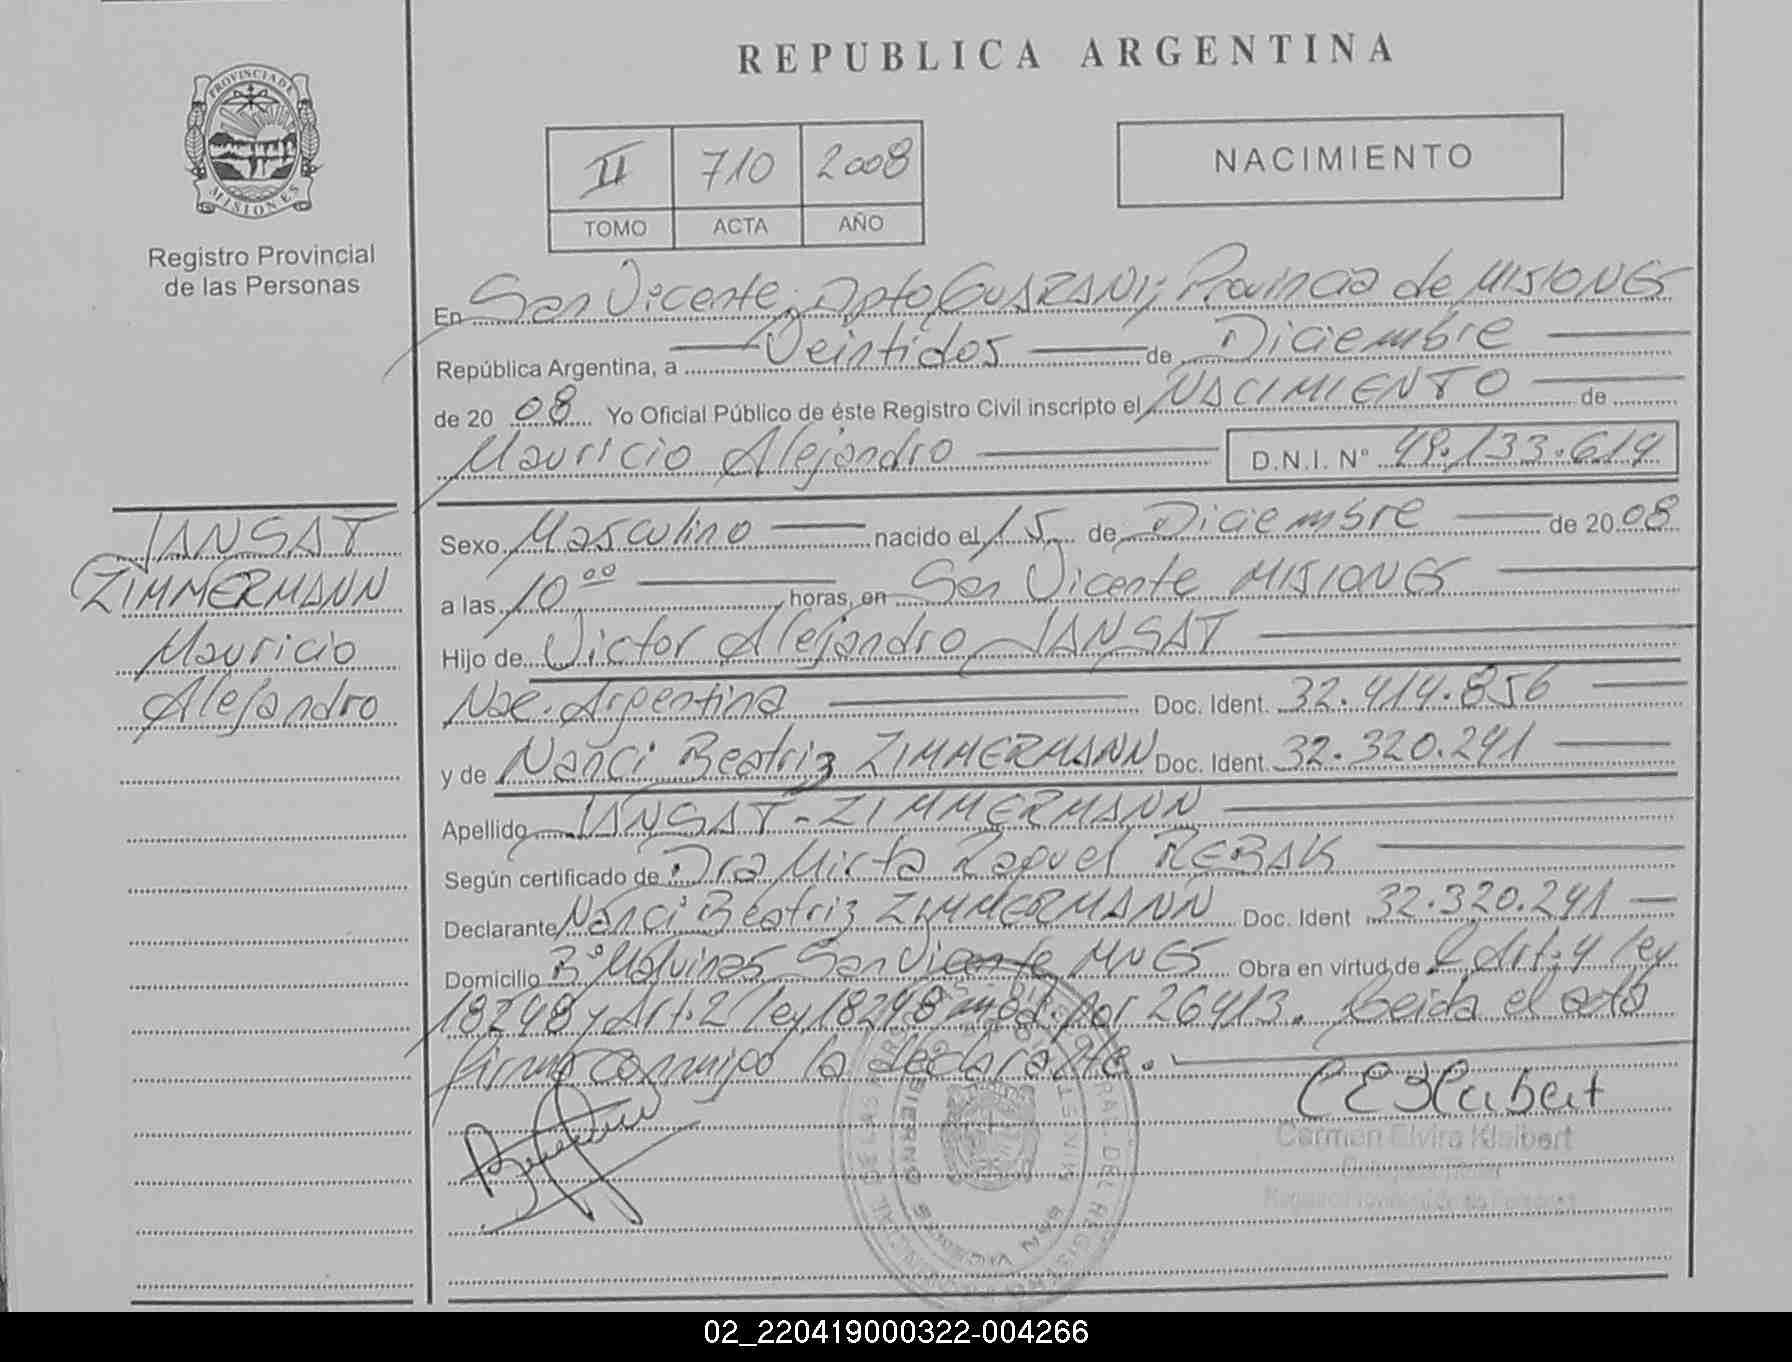 REPUBLICA ARGENTINA
PROVINCIA DE
MISIONES
Registro Provincial
de las Personas
II 710 2008
TOMO ACTA AÑO
NACIMIENTO
En San Vicente, Dpto GUARANI; Provincia de MISIONES
República Argentina, a Veintidos de Diciembre
de 20 08 Yo Oficial Público de éste Registro Civil inscripto el NACIMIENTO de
Mauricio Alejandro D.N.I. N° 49.133.614
JANSAT
ZIMMERMANN
Mauricio
Alejandro
Sexo Masculino nacido el 15 de Diciembre de 20 08
a las 10 00 horas, en San Vicente MISIONES
Hijo de Victor Alejandro JANSAT
Nac. Argentina Doc. Ident. 32.414.856
y de Nanci Beatriz ZIMMERMANN Doc. Ident. 32.320.241
Apellido JANSAT - ZIMMERMANN
Según certificado de Dra Mirta Raquel REBAK
Declarante Nanci Beatriz ZIMMERMANN Doc. Ident 32.320.241
Domicilio B° Malvinas San Vicente MNES Obra en virtud de Art. 4 ley
18248 y Art. 2 ley 18248 mod. por 26413. Leida el acta
firma conmigo la declarante.
Carmen Elvira Kleibert
SAN VICENTE
02_220419000322-004266